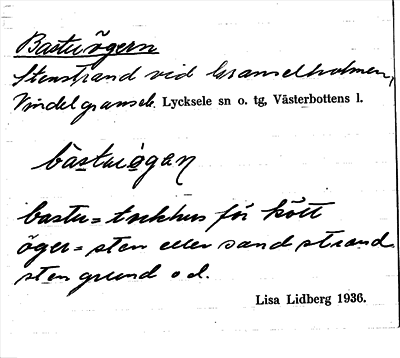 Bastuögern
Stenstrand vid Granselholmen,
Vindelgransele. Lycksele sn o. tg, Västerbottens l.
bastuögan
bastu = torkhus för kött
öger = sten eller sand strand
sten grund o d.
Lisa Lidberg 1936.